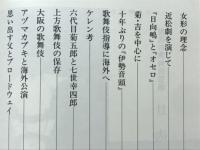 女形の理念
近松劇を演じて
『日向嶋』と『オセロ』
菊・吉を中心に
十年ぶりの『伊勢音頭』
歌舞伎指導に海外へ
ケレン考
六代目菊五郎と七世幸四郎
上方歌舞伎の保存
大阪の歌舞伎
アヅマカブキと海外公演
思い出す父とブロードウェイ